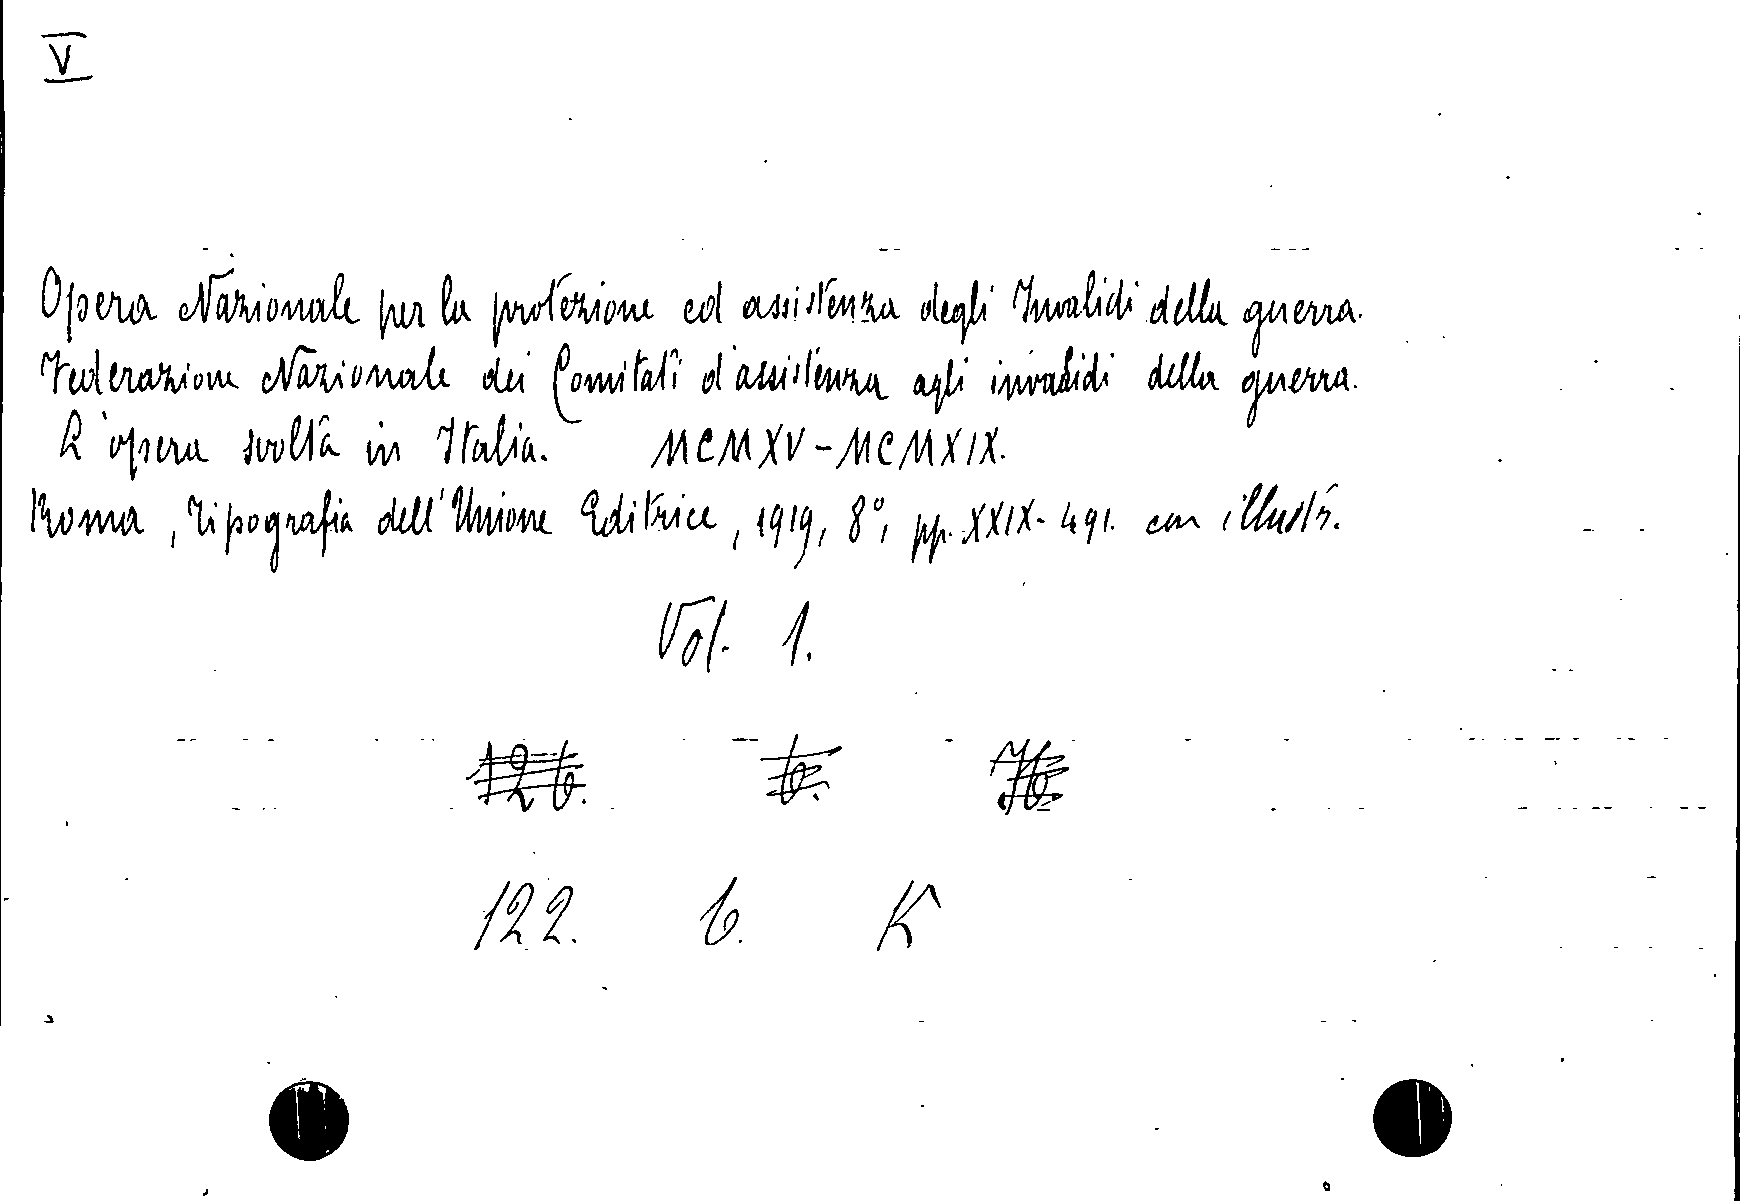 V
Opera Nazionale per la protezione ed assistenza degli Invalidi della guerra.
Federazione Nazionale dei Comitati d'assistenza agli invalidi della guerra.
L'opera svolta in Italia. MCMXV-MCMXIX.
Roma, Tipografia dell'Unione Editrice, 1919, 8°, pp. XXIX-491. con illustr.
Vol. 1.
122. b. K